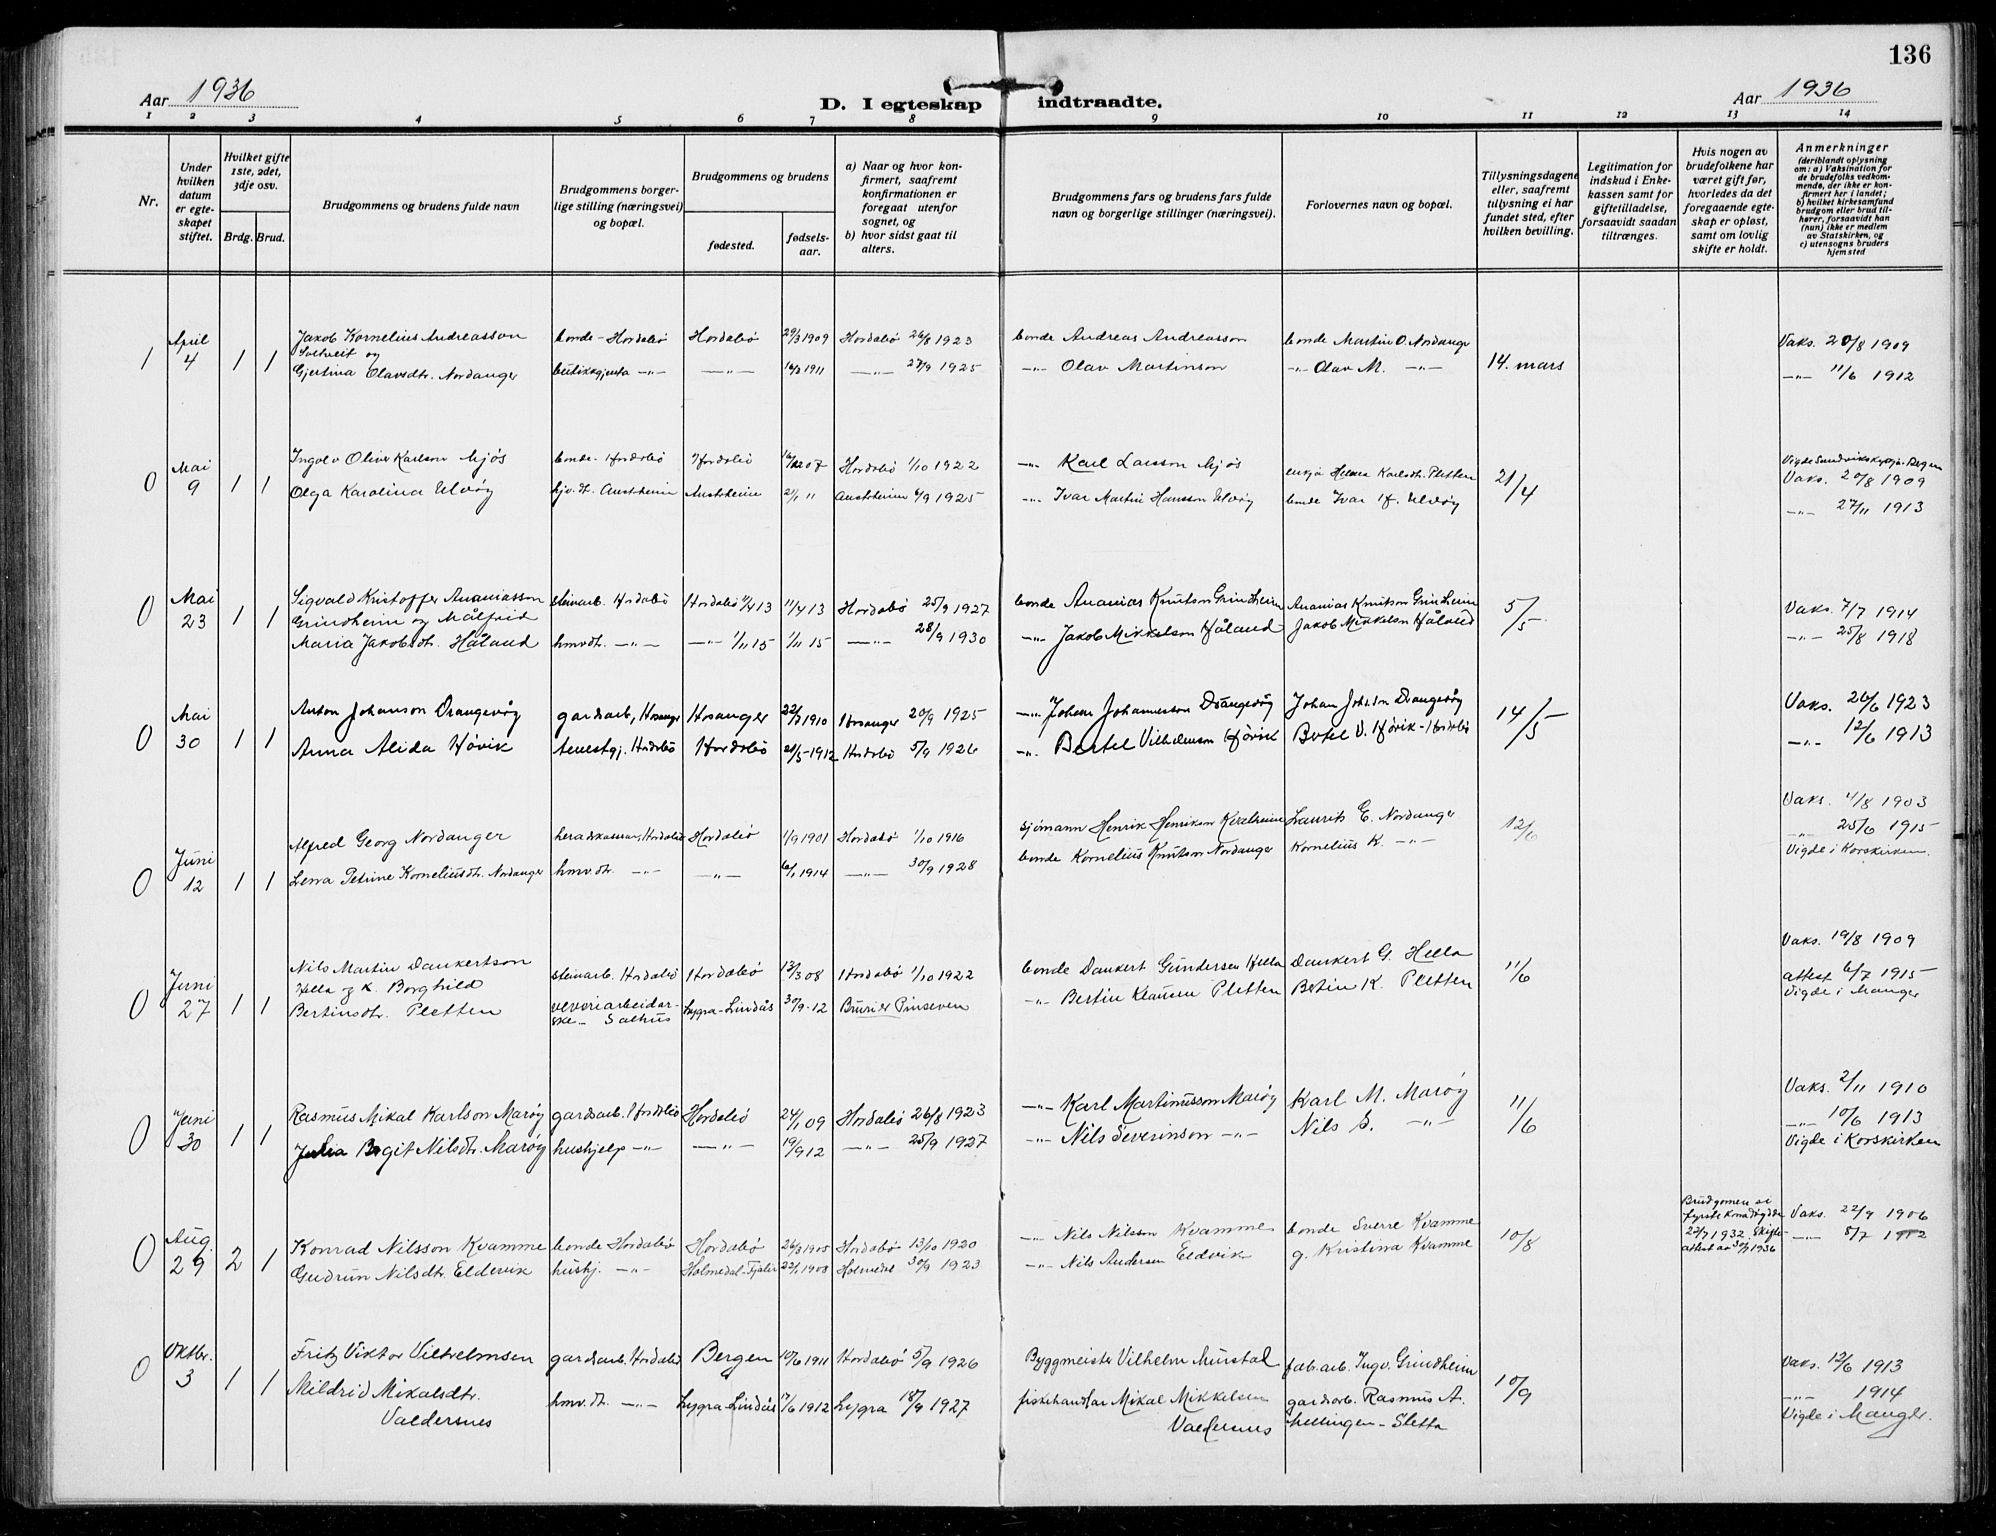 136
Aar 1936
D. I egteskap indtraadte.
Aar 1936
1 2 3 4 5 6 7 8 9 10 11 12 13 14
Nr.
Under hvilken datum er egte-skapet stiftet.
Hvilket gifte 1ste, 2det, 3dje osv.
Brdg. Brud.
Brudgommens og brudens fulde navn
Brudgommens borger-lige stilling (næringsvei) og bopæl.
Brudgommens og brudens
fødested.
fødsels-aar.
a) Naar og hvor kon-firmert, saafremt konfirmationen er foregaat utenfor sognet, og
b) hvor sidst gaat til alters.
Brudgommens fars og brudens fars fulde navn og borgerlige stillinger (næringsvei).
Forlovernes navn og bopæl.
Tillysningsdagene eller, saafremt tillysning ei har fundet sted, efter hvilken bevilling.
Legitimation for indskud i Enke-kassen samt for giftetilladelse, forsaavidt saadan tiltrænges.
Hvis nogen av brudefolkene har været gift før, hvorledes da det foregaaende egte-skap er opløst, samt om lovlig skifte er holdt.
Anmerkninger
(deriblandt oplysning om: a) Vaksination for de brudefolks vedkom-mende, der ikke er kon-firmert her i landet;
b) hvilket kirkesamfund brudgom eller brud til-hører, forsaavidt han (hun) ikke er medlem av Statskirken, og
c) utensogns bruders hjemsted
1 April 4 1 1 Jakob Kornelius Andreasson bonde - Hordabø Hordabø 29/3 1909 Hordabø 26/8 1923 bonde Andreas Andreasson bonde Martin O. Nordanger 14. mars Vaks. 20/8 1909
Soltveit og
Gjertina Olavsdtr. Nordanger butikkgjenta -"- -"- 1911 -"- 27/9 1925 -"- Olav Martinson -"- Olav M. -"- -"- 11/6 1912
0 Mai 9 1 1 Ingolv Oliver Karlson Mjøs bonde - Hordabø Hordabø 07 Hordabø 1/10 1922 -"- Karl Larsson Mjøs enkja Karlsdtr. Pletten 21/4 Vaks. 20/8 1909
Olga Karolina Ulvøy Austrheim Austrheim 2/1 11 Austrheim 6/9 1925 -"- Ivar Martin Hansson Ulvøy bonde Ivar H. Ulvøy -"- 27/11 1913
0 Mai 23 1 1 Sigvald Kristoffer Ananiasson steinarb. Hordabø Hordabø 11/4 13 11/4 13 Hordabø 25/9 1927 bonde Ananias Knutson Grindheim Ananias Knutson Grindheim 5/5 Vaks. 7/7 1914
Grindheim og Målfrid
Maria Jakobsdtr. Håland hmvdtr. -"- -"- 1/11 15 1/11 15 -"- 28/9 1930 -"- Jakob Mikkelson Håland Jakob Mikkelson Håland -"- 25/8 1918
0 Mai 30 1 1 Anton Johanson Drangevåg gardsarb, Hosanger Hosanger 22/7 1910 Hosanger 20/9 1925 -"- Johan Johannesson Drangevåg Johan Joh.son Drangevåg 14/5 Vaks. 26/6 1923
Anna Alida Høvik tenestgj. Hordabø Hordabø 1912 Hordabø 5/9 1926 -"- Bertel Vilhelmson Høvik Bertel V. Høvik - Hordabø -"- 12/6 1913
0 Juni 12 1 1 Alfred Georg Nordanger Hordabø Hordabø 1/9 1901 Hordabø 1/10 1916 sjømann Henrik Henrikson Kvalheim Laurits E. Nordanger 12/6 Vaks. 11/8 1903
-"- 25/6 1915
Lena Petrine Korneliusdtr. Nordanger hmvdtr. -"- -"- 6/1 1914 -"- 30/9 1928 bonde Kornelius Knutson Nordanger Kornelius K. -"- Vigde i Korskirken.
0 Juni 27 1 1 Nils Martin Dankertson steinarb. Hordabø Hordabø 13/3 08 Hordabø 1/10 1922 bonde Dankert Gundersen Hella Dankert G. Hella 11/6 Vaks. 19/8 1909
Hella og K. Borghild attest 6/7 1915
Bertinsdtr. Pletten veveriarbeidar-ske - Salhus Lygra-Lindås 30/9-12 Bruri er Pinseven -"- Bertin Klausen Pletten Bertin K. Pletten Vigde i Manger
0 Juni 30 1 1 Rasmus Mikal Karlson Marøy gardsarb. Hordabø Hordabø 24/1 09 Hordabø 26/8 1923 -"- Karl Martinusson Marøy Karl M. Marøy 11/6 Vaks. 2/11 1910
-"- 10/6 1913
Julia Birgit Nilsdtr. Marøy hushjelp -"- -"- 19/9 12 -"- 25/9 1927 -"- Nils Severinson -"- Nils S. -"- Vigde i Korskirken
0 Aug. 29 2 1 Konrad Nilsson Kvamme bonde Hordabø Hordabø 26/3 1905 Hordabø 13/10 1920 -"- Nils Nilsson Kvamme bonde Sverre Kvamme 10/8 Brudgomen si fyrste kona døydde 22/7 1932. Skifte-attest av 30/7 1936 Vaks. 22/9 1906
Gudrun Nilsdtr. Eldevik hushj. -"- Holmedal-Fjaler 22/1 1908 Holmedal 30/9 1923 -"- Nils Andersen Eldvik g. Kristina Kvamme -"- 8/7 1912
0 Oktbr. 3 1 1 Fritz Viktor Vilhelmsen gardsarb. Hordabø Bergen 10/6 1911 Hordabø 5/9 1926 Byggmeister Vilhelm Murstad fab.arb. Ingv. Grindheim 10/9 Vaks. 12/6 1913
Mildrid Mikalsdtr. hmv.dtr. -"- Lygra-Lindås 17/6 1912 Lygra 18/9 1927 fiskehandlar Mikal Mikkelsen gardsarb. Rasmus A. -"- 1914
Valdersnes Valdersnes Hellingen - Sletta Vigde i Manger.